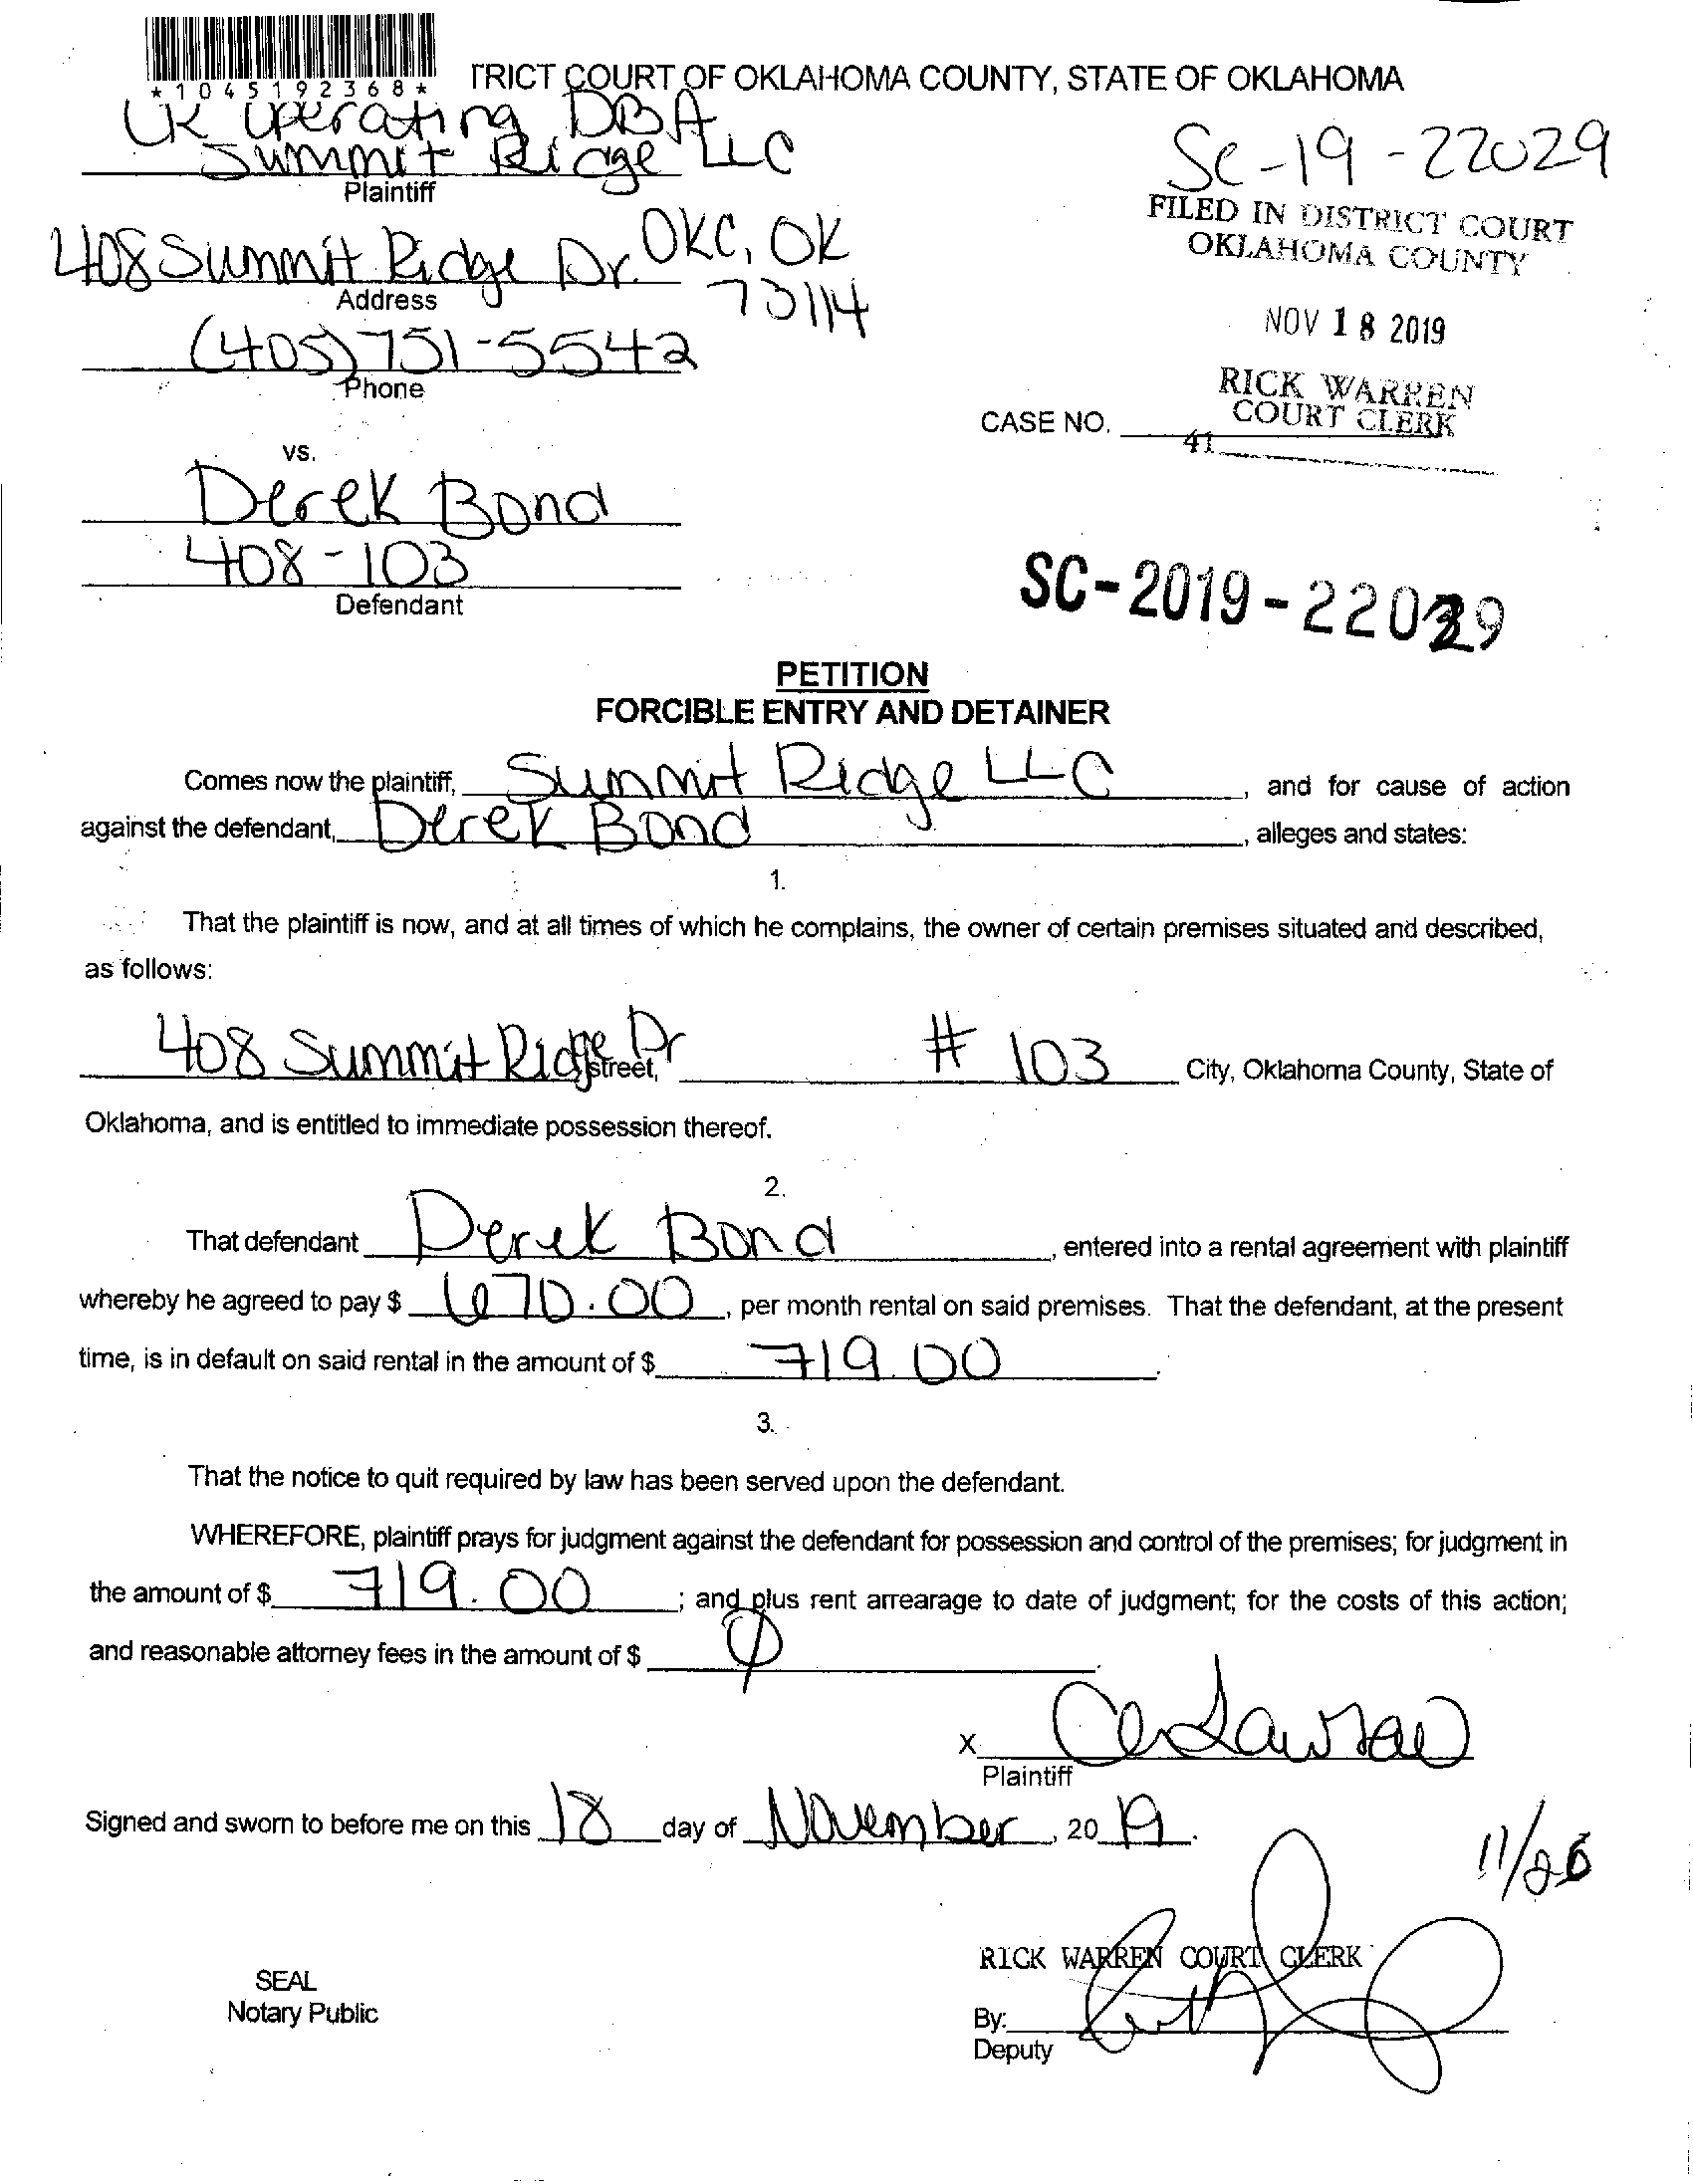 *1045192368*
TRICT COURT OF OKLAHOMA COUNTY, STATE OF OKLAHOMA
Operating DBA
Summit Ridge LLC
Plaintiff
SC-19-22029
FILED IN DISTRICT COURT
OKLAHOMA COUNTY
408 Summit Ridge Dr. OKC, OK
73114
Address
NOV 18 2019
(405) 751-5542
Phone
RICK WARREN
COURT CLERK
CASE NO.
41
vs.
Derek Bond
408-103
Defendant
SC-2019-22029
PETITION
FORCIBLE ENTRY AND DETAINER
Comes now the plaintiff, Summit Ridge LLC, and for cause of action
against the defendant, Derek Bond, alleges and states:
1.
That the plaintiff is now, and at all times of which he complains, the owner of certain premises situated and described,
as follows:
408 Summit Ridge Dr street, # 103 City, Oklahoma County, State of
Oklahoma, and is entitled to immediate possession thereof.
2.
That defendant Derek Bond, entered into a rental agreement with plaintiff
whereby he agreed to pay $ 670.00, per month rental on said premises. That the defendant, at the present
time, is in default on said rental in the amount of $ 719.00.
3.
That the notice to quit required by law has been served upon the defendant.
WHEREFORE, plaintiff prays for judgment against the defendant for possession and control of the premises; for judgment in
the amount of $ 719.00; and plus rent arrearage to date of judgment; for the costs of this action;
and reasonable attorney fees in the amount of $ 0.
X
Plaintiff
Signed and sworn to before me on this 18 day of November, 2019.
11/26
RICK WARREN COURT CLERK
SEAL
Notary Public
By:
Deputy